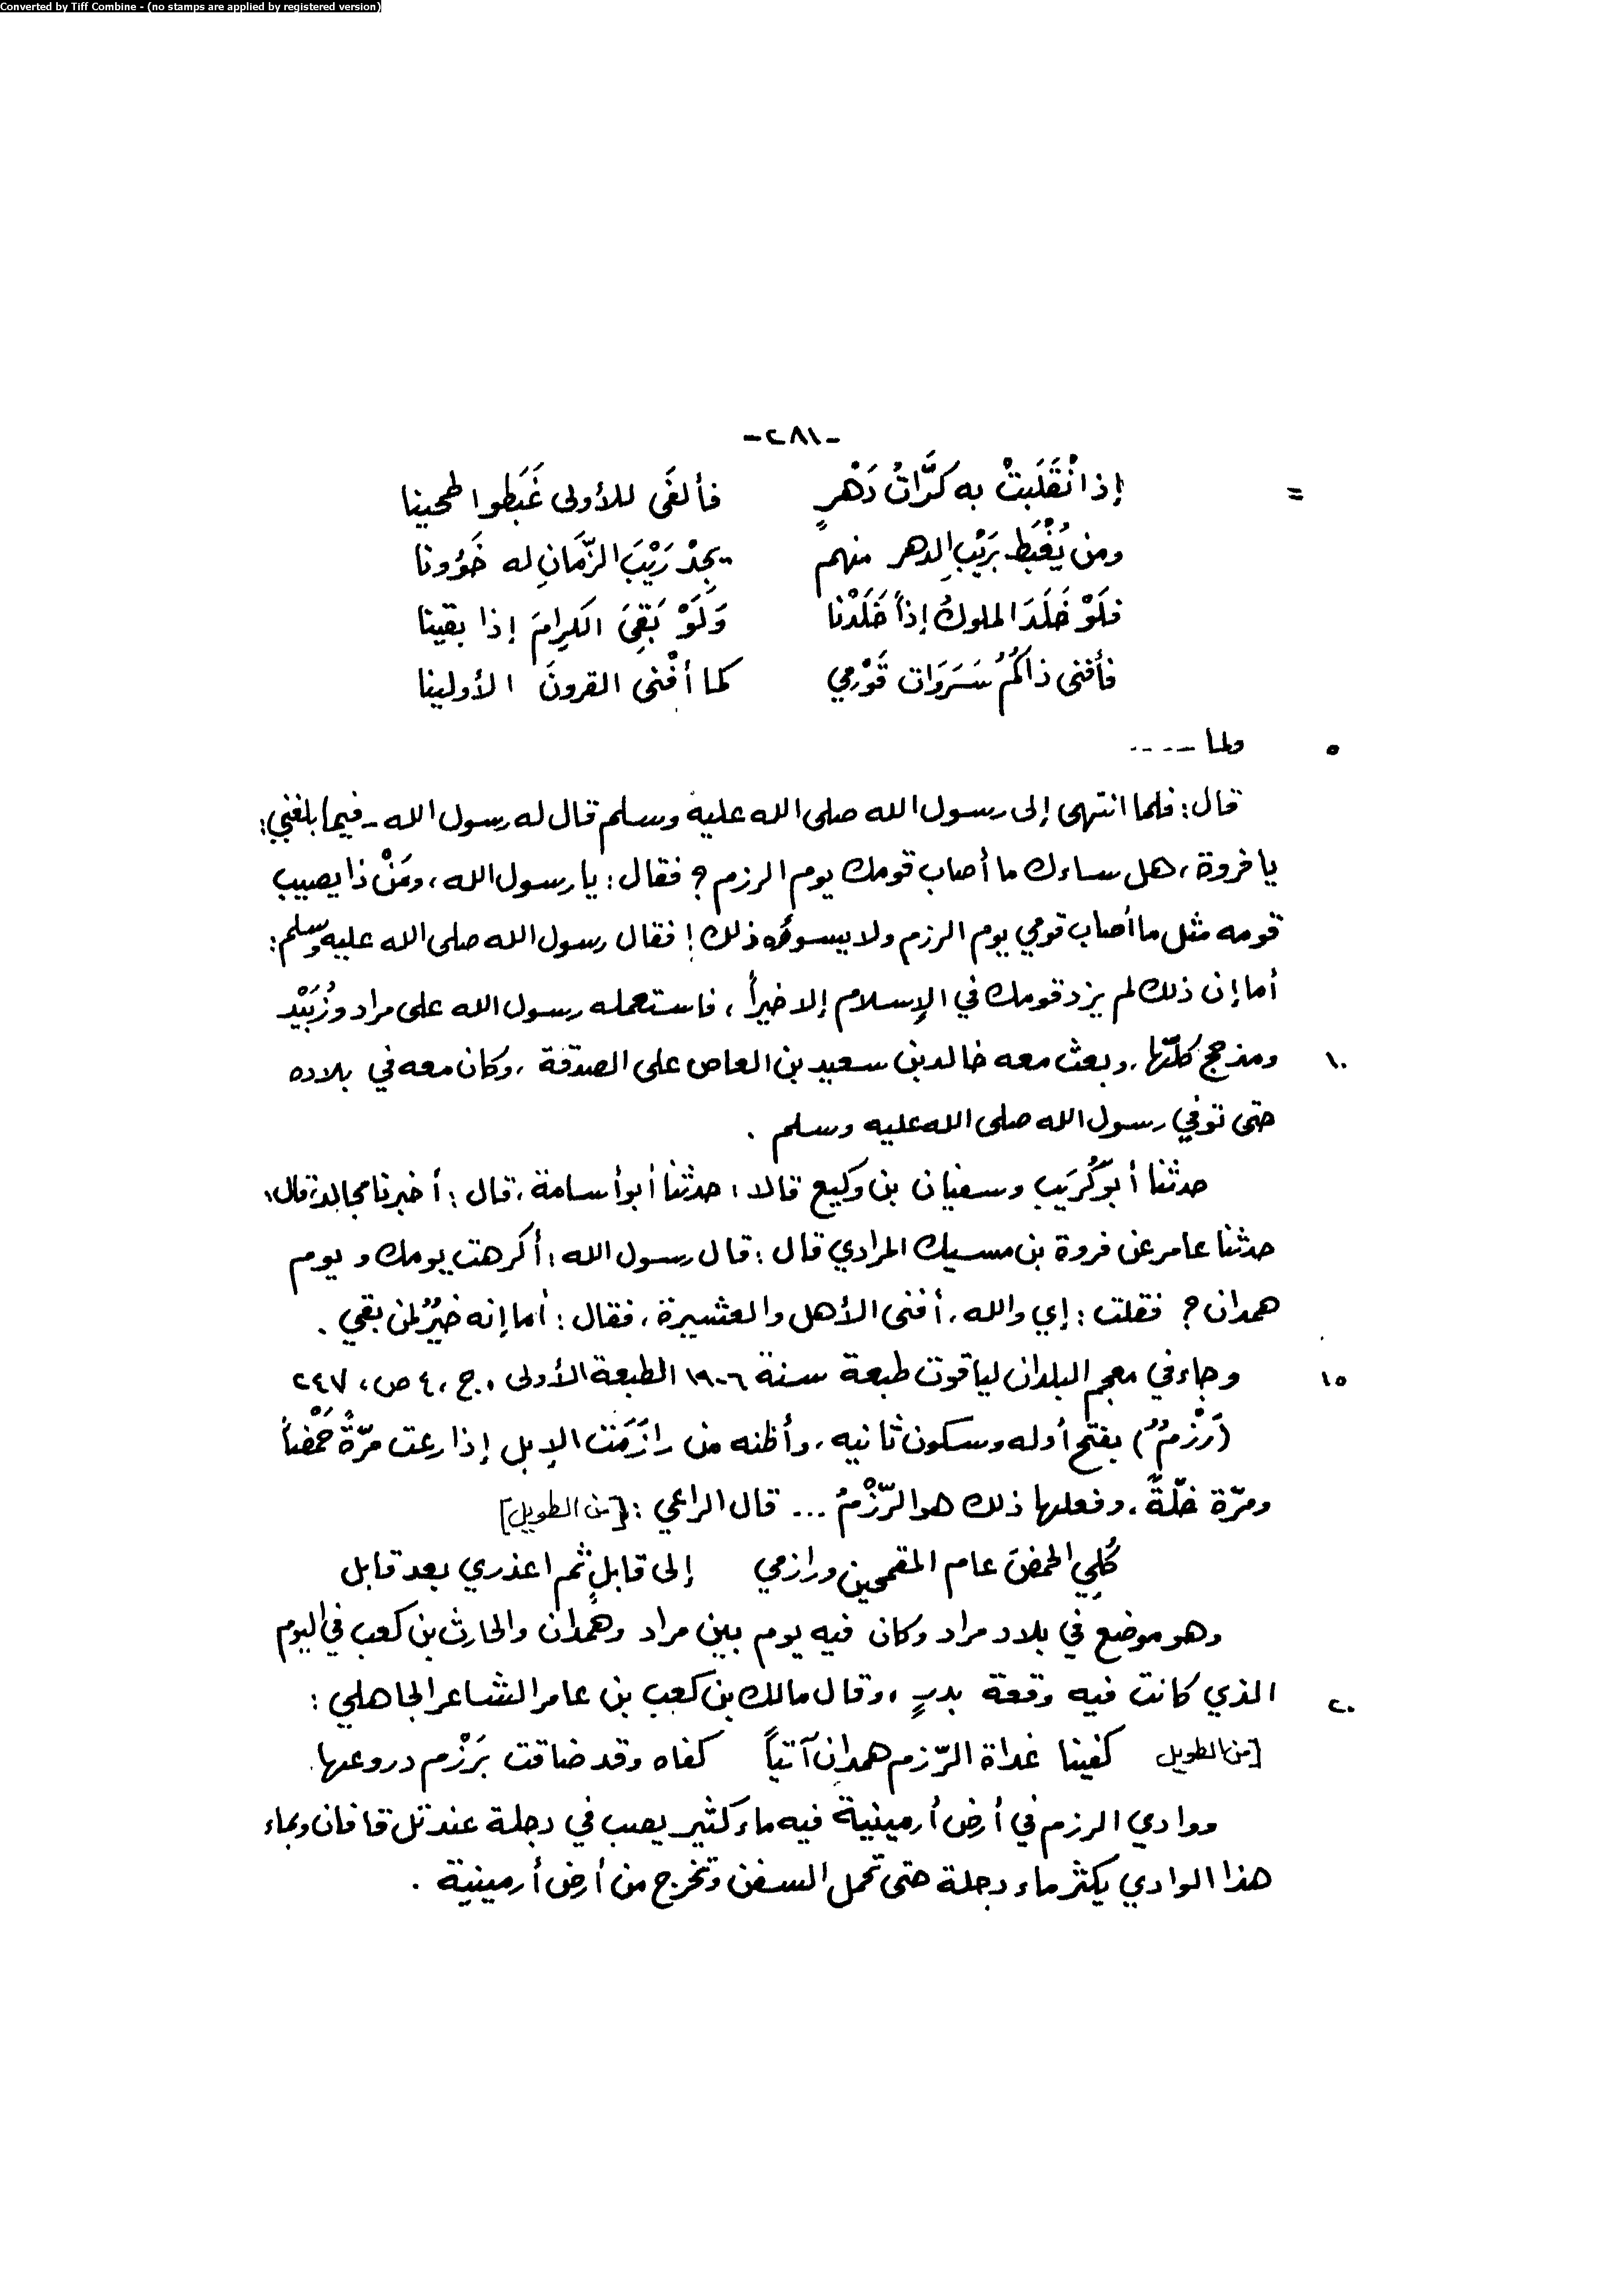 Converted by Tiff Combine - (no stamps are applied by registered version)
-٢٨١-
= إذا انْقَلَبتْ به كَرَّاتُ دَهْرٍ فألفَى للأولى غَبَطوا طحينا
ومن يُغْبَط بَرَيْبِ الدهر منهم يَجِدْ رَيْبَ الزَّمَانِ له خَؤُونا
فلَوْ خَلَدَ الملوكُ إذاً خَلَدْنا وَلَوْ بَقِيَ الكرامَ إذا بقينا
فأفنى ذاكُمُ سَرَوَات قَوْمِي كما أفْنى القرونَ الأولينا
٥ ولما ....
قال: فلما انتهى إلى رسول الله صلى الله عليه وسلم قال له رسول الله - فيما بلغني:
يا فروة، هل ساءك ما أصاب قومك يوم الرزم؟ فقال: يا رسول الله، ومَنْ ذا يصيب
قومه مثل ما أصاب قومي يوم الرزم ولا يسوؤه ذلك! فقال رسول الله صلى الله عليه وسلم:
أما إن ذلك لم يزد قومك في الإسلام إلا خيراً، فاستعمله رسول الله على مراد وزُبَيْد
١٠ ومذحج كلّها، وبعث معه خالد بن سعيد بن العاص على الصدّقة، وكان معه في بلاده
حتى توفي رسول الله صلى الله عليه وسلم .
حدثنا أبو كُرَيب وسفيان بن وكيع قالا: حدثنا أبو أسامة، قال: أخبرنا مجالد، قال:
حدثنا عامر عن فروة بن مسيك المرادي قال: قال رسول الله: أكرهت يومك و يوم
همدان؟ فقلت: إي والله، أفنى الأهل والعشيرة، فقال: أما إنه خيرٌ لمن بقي .
١٥ وجاء في معجم البلدان لياقوت طبعة سنة ١٩٠٦ الطبعة الأولى، ج، ٤ ص، ٢٤٧
(رَزْمٌ) بفتح أوله وسكون ثانيه، وأظنه من رازَمَت الإبل إذا رعت مرّةً حَمْضاً
ومرّة خلّةً، وفعلها ذلك هو الرّزْمُ ... قال الراعي: [من الطويل]
كُلِي الحمضَ عام المقمحين ورازمي إلى قابلٍ ثم اعذري بعد قابل
وهو موضع في بلاد مراد وكان فيه يوم بين مراد وهَمْدان والحارث بن كعب في اليوم
٢٠ الذي كانت فيه وقعة بدرٍ، وقال مالك بن كعب بن عامر الشاعر الجاهلي:
[من الطويل كفينا غداة الرّزم همدان آتياً كفاه وقد ضاقت بَرَزْم دروعها.
ووادي الرزم في أرض أرمينية فيه ماء كثير يصب في دجلة عند تل قافان وبماء
هذا الوادي يكثر ماء دجلة حتى تحمل السفن وتخرج من أرض أرمينية .